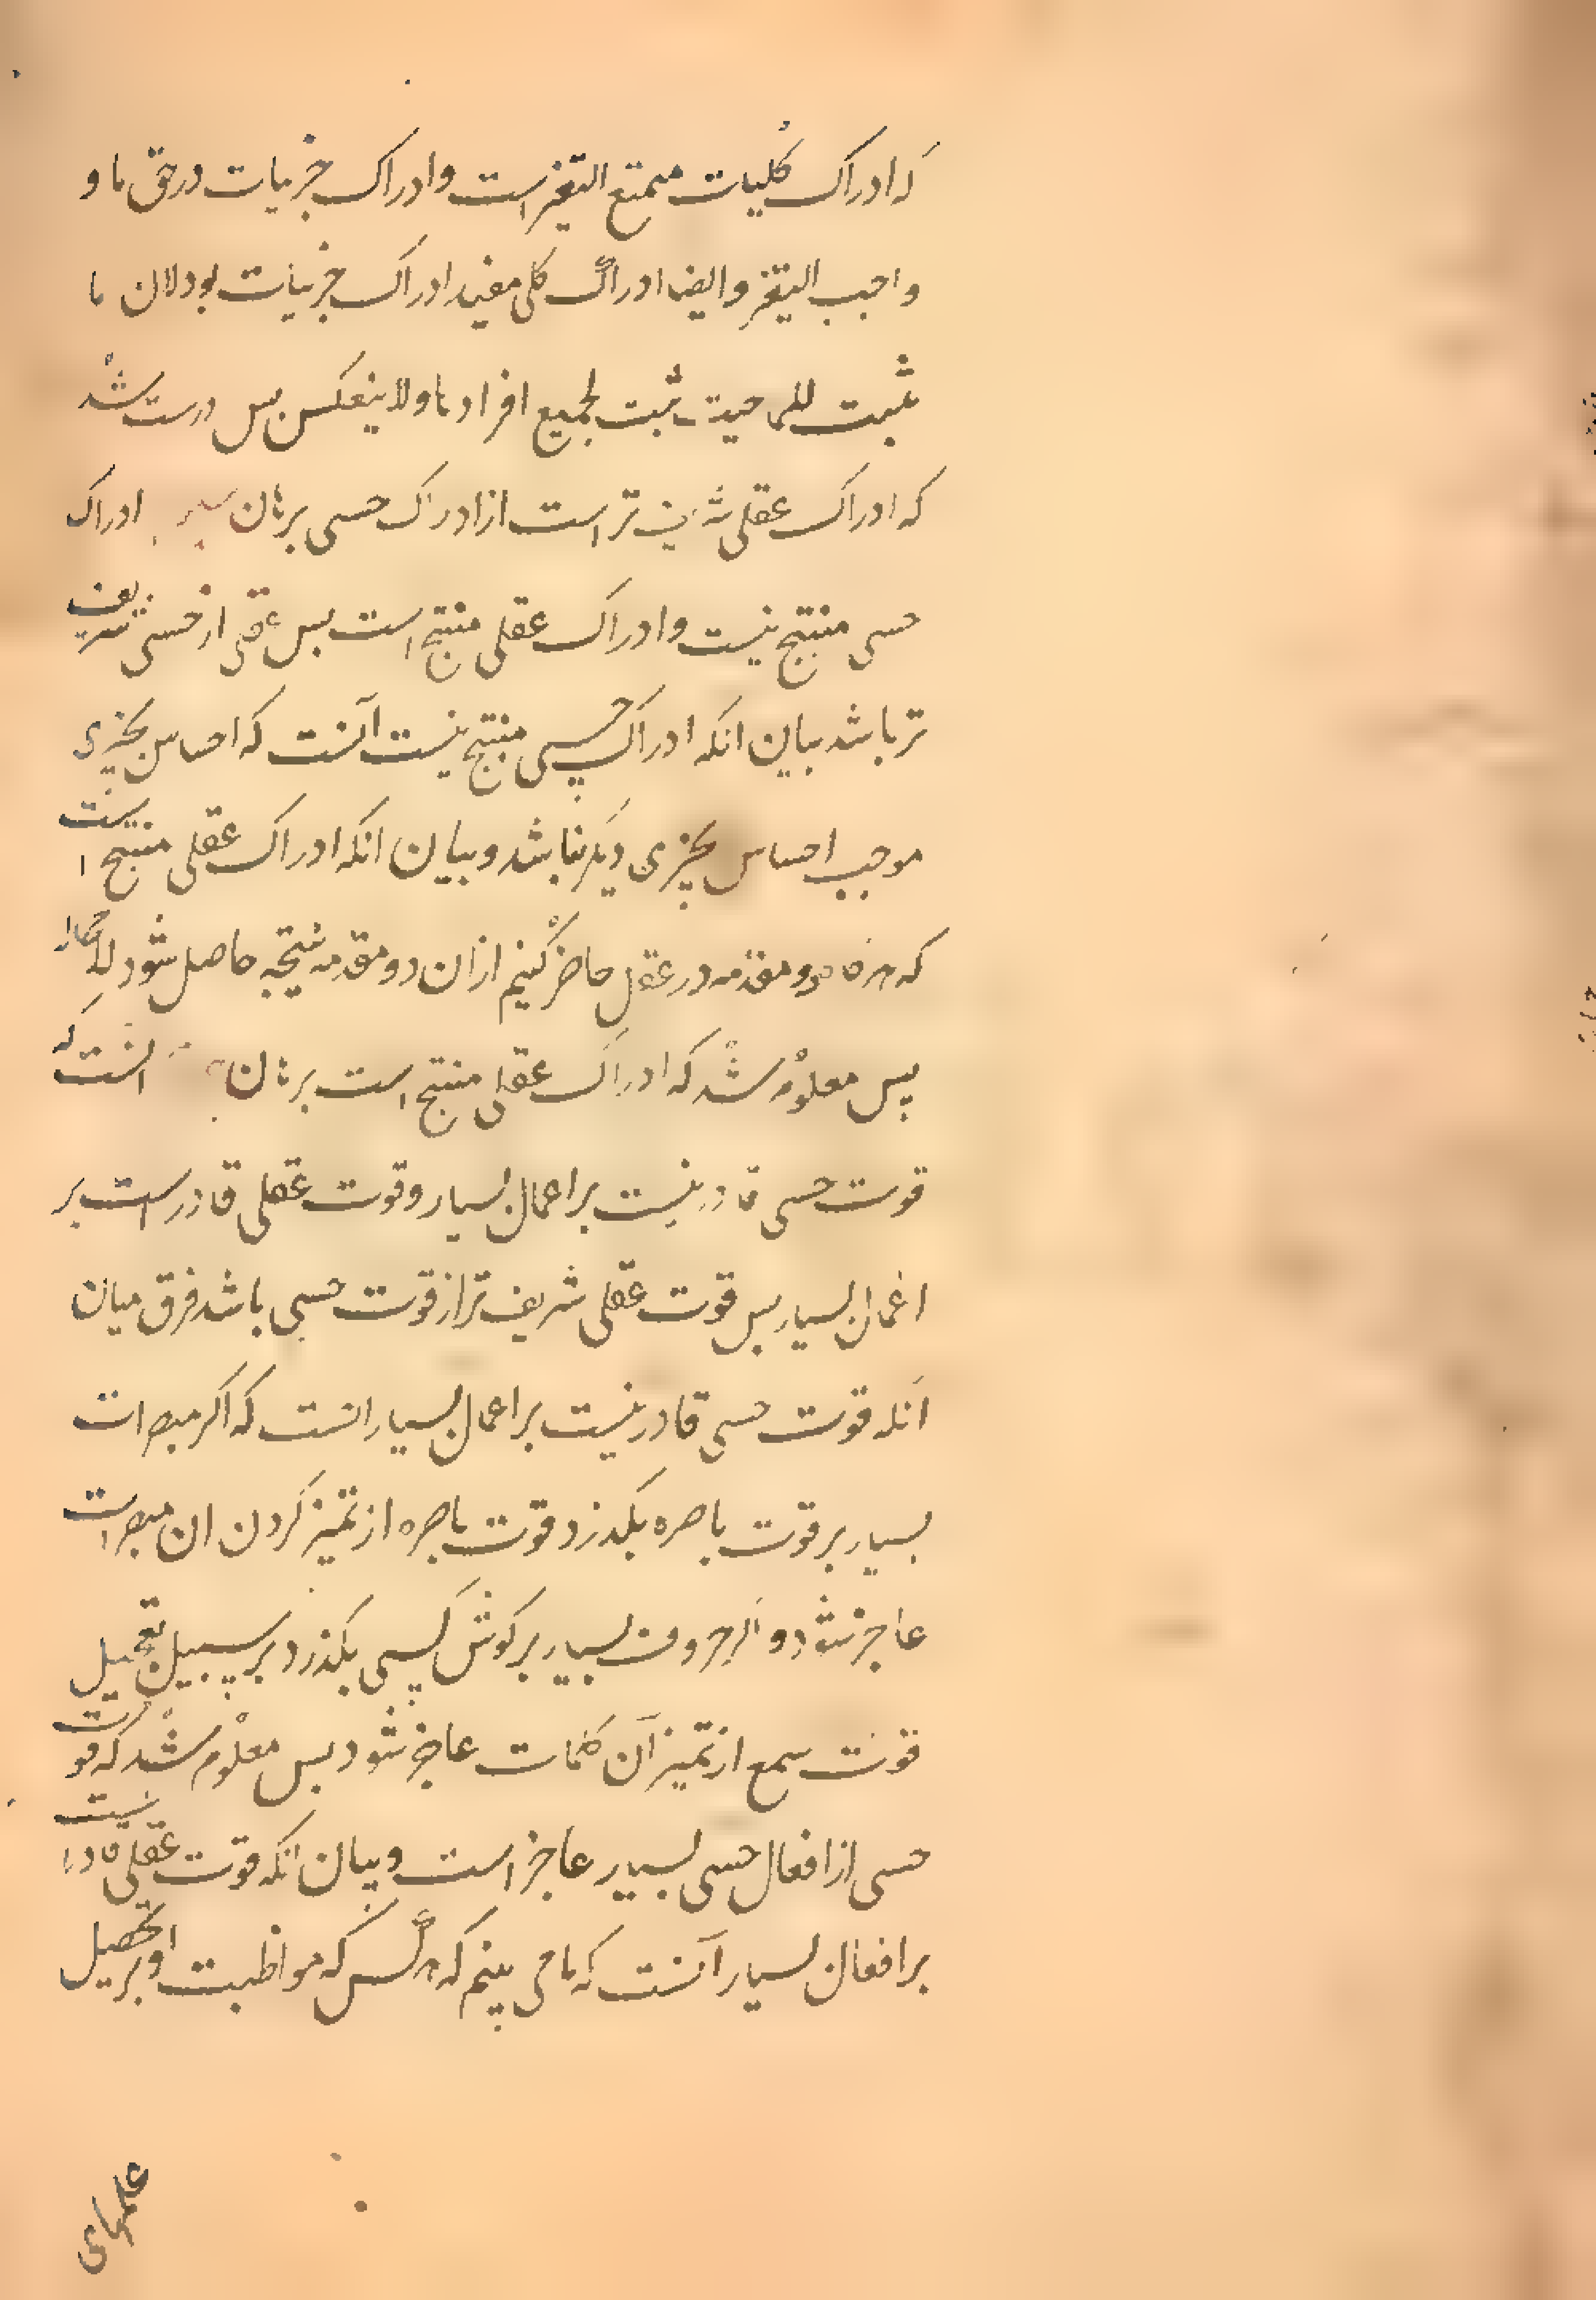 که ادراک کلیات ممتنع التغیر است و ادراک جزییات در حق ما و
واجب التغیر و ایضا ادراک کلی مفید ادراک جزییات بود لان ما
ثبت للماهیت ثبت لجمیع افرادها و لا ینعکس پس درست شد
که ادراک عقلی شریف تر است از ادراک حسی برهان ادراک
حسی منتج نیست و ادراک عقلی منتج است پس عقلی از حسی شریف
تر باشد بیان انکه ادراک حسی منتج نیست آنست که احساس بچیزی
موجب احساس بچیزی دیگر نباشد و بیان انکه ادراک عقلی منتج است
که هرگاه دو مقدمه در عقل حاضر کنیم از ان دو مقدمه نتیجه حاصل شود
پس معلوم شد که ادراک عقلی منتج است برهان انست که
قوت حسی قادر نیست بر اعمال بسیار و قوت عقلی قادر است بر
اعمال بسیار پس قوت عقلی شریف تر از قوت حسی باشد فرق میان
انکه قوت حسی قادر نیست بر اعمال بسیار انست که اکر مبصرات
بسیار بر قوت باصره بکذرد قوت باصره از تمیز کردن ان مبصرات
عاجز شود و اکر حروف بسیار بر کوش کسی بکذرد بر سبیل تعجیل
قوت سمع از تمیز آن کلمات عاجز شود پس معلوم شد که قوت
حسی از افعال حسی بسیار عاجز است و بیان انکه قوت عقلی قادر است
بر افعال بسیار آنست که ما می بینم که هر کس که مواظبت او بر تحصیل
علمهای